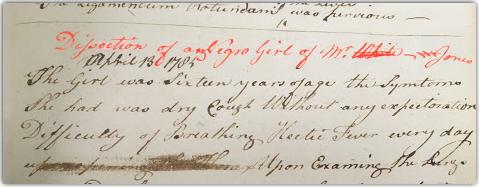 The Ligamentum Rotundam was pervious —
Dissection of a Negro Girl of Mr. White Jones
April 13 1785
The Girl was Sixteen years of age the Symtoms
She had was dry Cough Without any expectoration
Difficulty of Breathing Hectic Fever every day
Upon Examining the Lungs